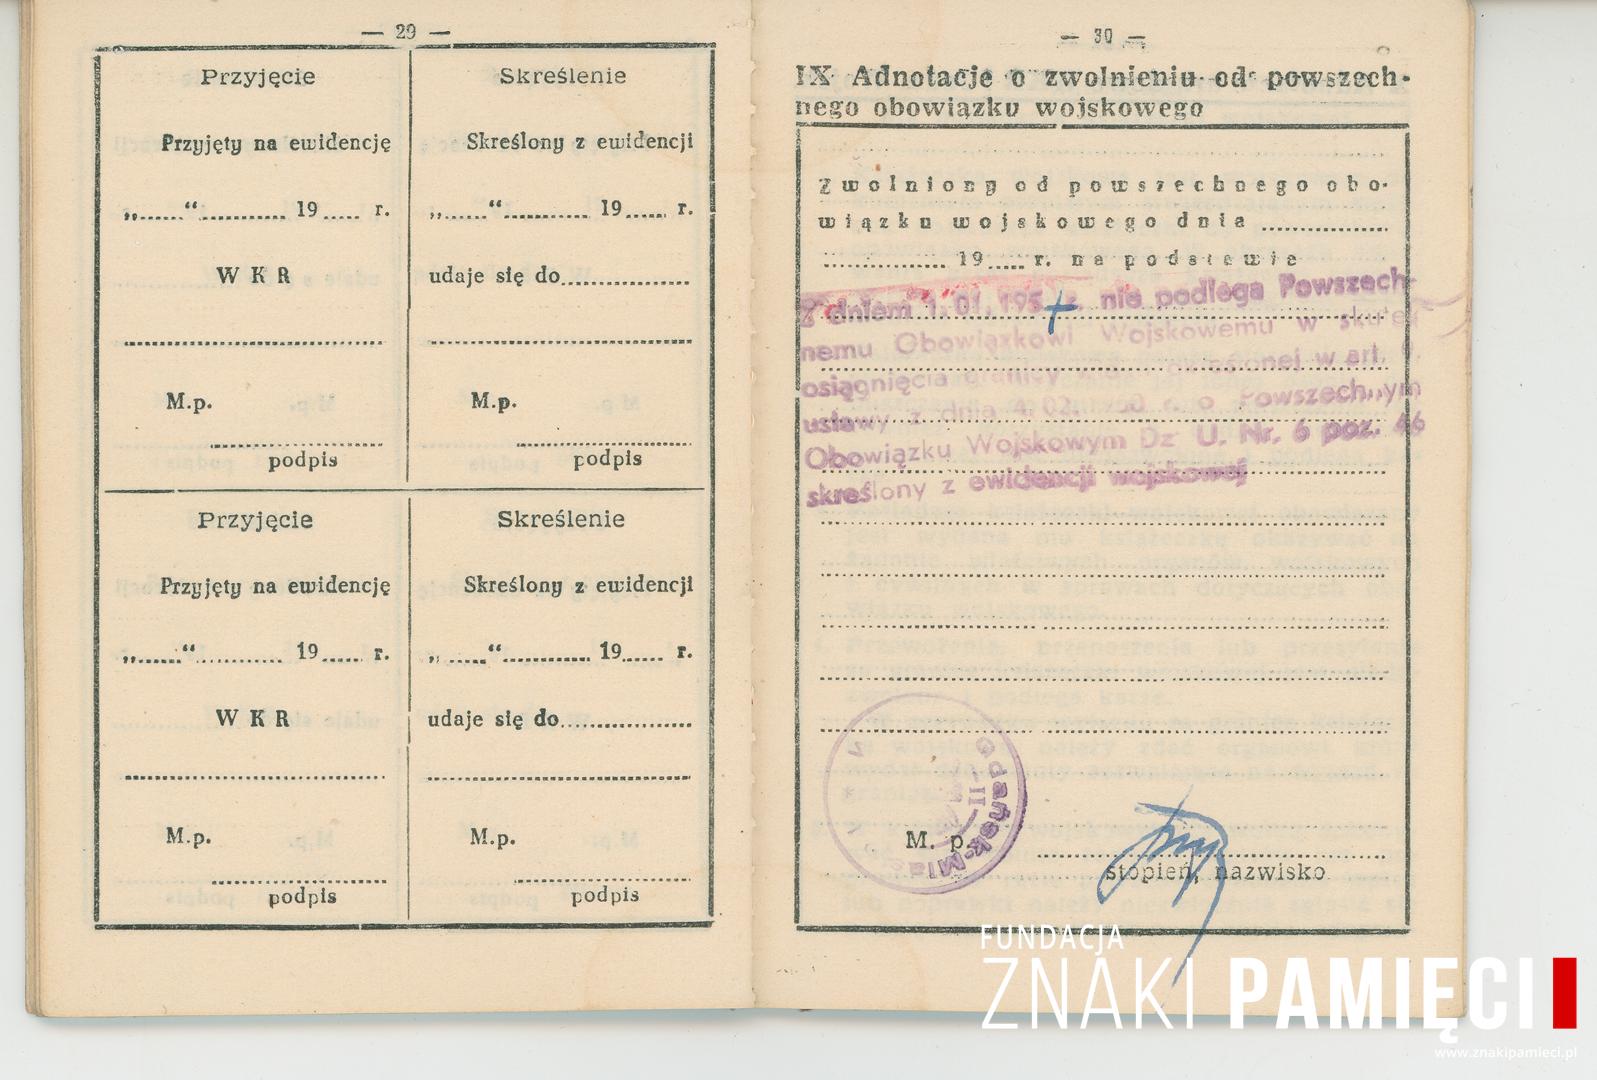 — 29 —
Przyjęcie
Przyjęty na ewidencję
„......“............ 19..... r.
W K R
M.p.
podpis
Skreślenie
Skreślony z ewidencji
„......“............ 19..... r.
udaje się do..................
M.p.
podpis
Przyjęcie
Przyjęty na ewidencję
„......“............ 19..... r.
W K R
M.p.
podpis
Skreślenie
Skreślony z ewidencji
„......“............ 19..... r.
udaje się do..................
M.p.
podpis
— 30 —
IX Adnotacje o zwolnieniu od powszech-
nego obowiązku wojskowego
Zwolniony od powszechnego obo-
wiązku wojskowego dnia ..................
.................. 19..... r. na podstawie
Z dniem 1.01.195 r. nie podlega Powszech-
nemu Obowiązkowi Wojskowemu w skutek
osiągnięcia granicy określonej w art. 
ustawy z dnia 4.02. 1950 r. o Powszechnym
Obowiązku Wojskowym Dz. U. Nr. 6 poz. 46
skreślony z ewidencji wojskowej
Gdańsk-Mia
—II—
M. p.
stopień, nazwisko
FUNDACJA
ZNAKI PAMIĘCI
www.znakipamieci.pl